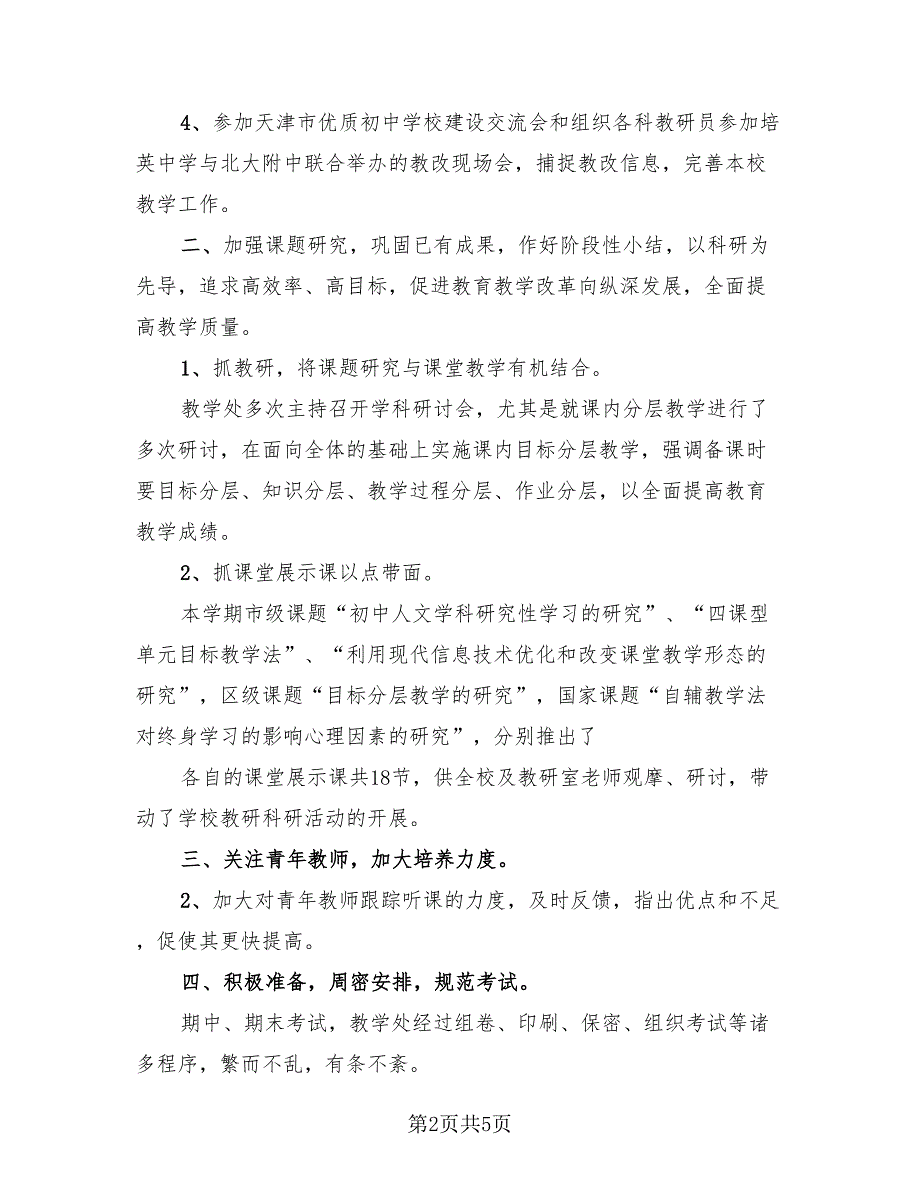 4、参加天津市优质初中学校建设交流会和组织各科教研员参加培
英中学与北大附中联合举办的教改现场会，捕捉教改信息，完善本校
教学工作。
二、加强课题研究，巩固已有成果，作好阶段性小结，以科研为
先导，追求高效率、高目标，促进教育教学改革向纵深发展，全面提
高教学质量。
1、抓教研，将课题研究与课堂教学有机结合。
教学处多次主持召开学科研讨会，尤其是就课内分层教学进行了
多次研讨，在面向全体的基础上实施课内目标分层教学，强调备课时
要目标分层、知识分层、教学过程分层、作业分层，以全面提高教育
教学成绩。
2、抓课堂展示课以点带面。
本学期市级课题“初中人文学科研究性学习的研究”、“四课型
单元目标教学法”、“利用现代信息技术优化和改变课堂教学形态的
研究”，区级课题“目标分层教学的研究”，国家课题“自辅教学法
对终身学习的影响心理因素的研究”，分别推出了
各自的课堂展示课共18节，供全校及教研室老师观摩、研讨，带
动了学校教研科研活动的开展。
三、关注青年教师，加大培养力度。
2、加大对青年教师跟踪听课的力度，及时反馈，指出优点和不足
，促使其更快提高。
四、积极准备，周密安排，规范考试。
期中、期末考试，教学处经过组卷、印刷、保密、组织考试等诸
多程序，繁而不乱，有条不紊。
第2页共5页